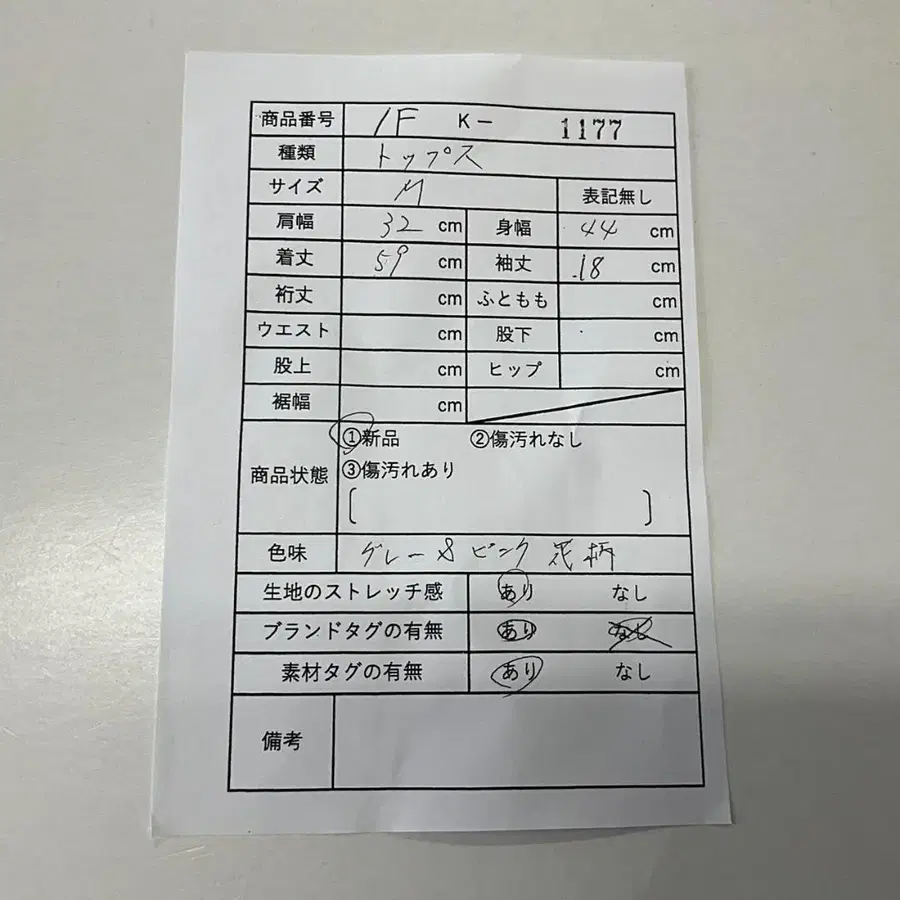 商品番号 1F K- 1177
種類 トップス
サイズ M 表記無し
肩幅 32 cm 身幅 44 cm
着丈 59 cm 袖丈 18 cm
裄丈 cm ふともも cm
ウエスト cm 股下 cm
股上 cm ヒップ cm
裾幅 cm
①新品 ②傷汚れなし
商品状態 ③傷汚れあり
[ ]
色味 グレー&ピンク 花柄
生地のストレッチ感 あり なし
ブランドタグの有無 あり なし
素材タグの有無 あり なし
備考